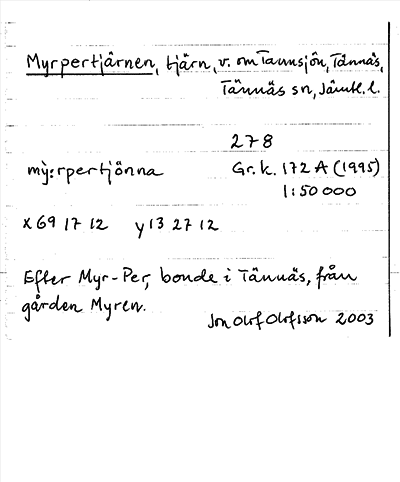 Myrpertjärnen, tjärn, v. om Tannsjön, Tännäs,
Tännäs sn, Jämtl. l.
278
mỳ:rpertjönna Gr. k. 172 A (1995)
1:50 000
x 69 17 12 y 13 27 12
Efter Myr-Per, bonde i Tännäs, från
gården Myren.
Jon Olof Olofsson 2003